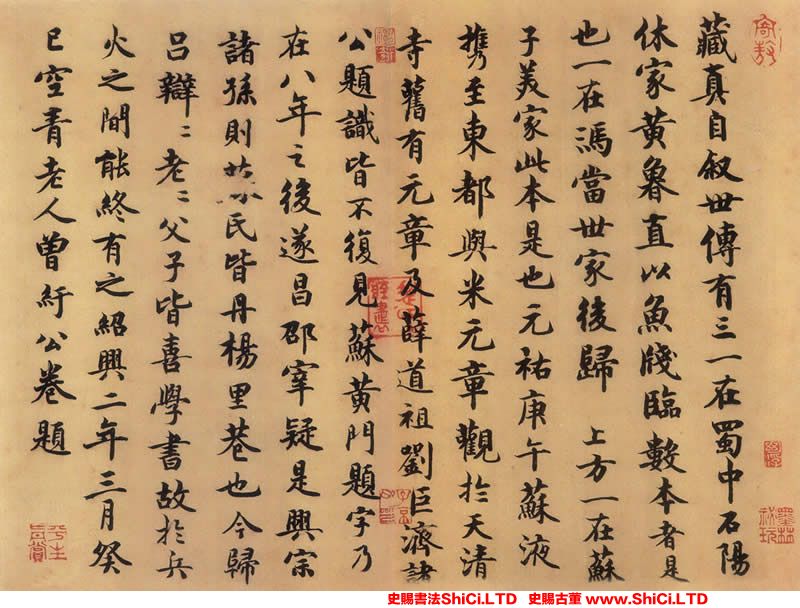 藏真自叙世傳有三一在蜀中石陽
休家黄魯直以魚牋臨數本者是
也一在馮當世家後歸 上方一在蘇
子美家此本是也元祐庚午蘇液
携至東都與米元章觀於天清
寺舊有元章及薛道祖劉巨濟諸
公題識皆不復見蘇黄門題字乃
在八年之後遂昌邵宰疑是興宗
諸孫則蘇氏皆丹楊里巷也今歸
吕辯〻老〻父子皆喜學書故於兵
火之間能終有之紹興二年三月癸
巳空青老人曾紆公卷題
史賜書法ShiCi.LTD 史賜古董 www.ShiCi.LTD